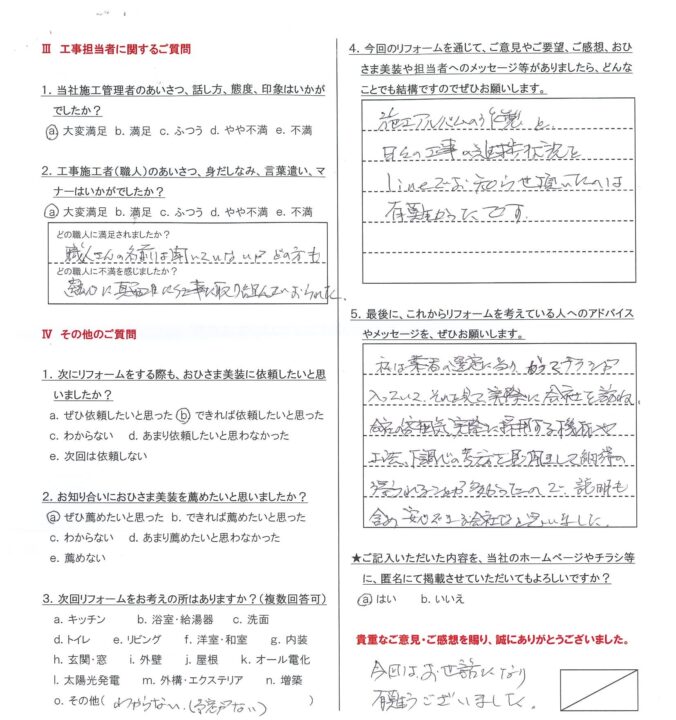 Ⅲ 工事担当者に関するご質問
1. 当社施工管理者のあいさつ、話し方、態度、印象はいかが
でしたか?
a 大変満足 b. 満足 c. ふつう d. やや不満 e. 不満
2. 工事施工者(職人)のあいさつ、身だしなみ、言葉遣い、マ
ナーはいかがでしたか?
a 大変満足 b. 満足 c. ふつう d. やや不満 e. 不満
どの職人に満足されましたか?
職人さんの名前は聞いていないが どの方も
どの職人に不満を感じましたか?
に真面目に仕事に取り組んでおられた。
Ⅳ その他のご質問
1. 次にリフォームをする際も、おひさま美装に依頼したいと思
いましたか?
a. ぜひ依頼したいと思った b できれば依頼したいと思った
c. わからない d. あまり依頼したいと思わなかった
e. 次回は依頼しない
2. お知り合いにおひさま美装を薦めたいと思いましたか?
a ぜひ薦めたいと思った b. できれば薦めたいと思った
c. わからない d. あまり薦めたいと思わなかった
e. 薦めない
3. 次回リフォームをお考えの所はありますか?(複数回答可)
a. キッチン b. 浴室・給湯器 c. 洗面
d.トイレ e. リビング f. 洋室・和室 g. 内装
h. 玄関・窓 i. 外壁 j. 屋根 k. オール電化
l. 太陽光発電 m. 外構・エクステリア n. 増築
o. その他( わからない。(予定がない) )
4. 今回のリフォームを通じて、ご意見やご要望、ご感想、おひ
さま美装や担当者へのメッセージ等がありましたら、どんな
ことでも結構ですのでぜひお願いします。
施工アルバムの作製と、
日々の工事の進捗状況を
lineでお知らせ頂いたのは
有難かったです。
5. 最後に、これからリフォームを考えている人へのアドバイス
やメッセージを、ぜひお願いします。
私は業者の選定に当り、 チラシが
入っていて、それを見て実際に会社を訪ね、
会社の雰囲気、実際に採用する機材や
工法、下調べの を して納得の
得られることが多かったので、説明も
含め 安心できる会社だと思いました。
★ご記入いただいた内容を、当社のホームページやチラシ等
に、匿名にて掲載させていただいてもよろしいですか?
a はい b. いいえ
貴重なご意見・ご感想を賜り、誠にありがとうございました。
今回は、お世話になり
有難うございました。